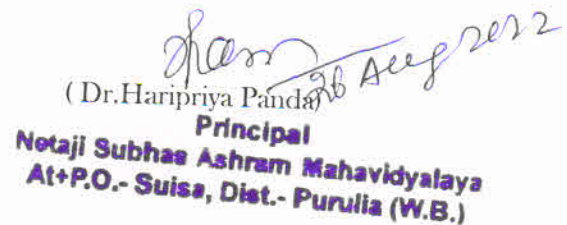 26 Aug 2022
( Dr.Haripriya Panda)
Principal
Netaji Subhas Ashram Mahavidyalaya
At+P.O.- Suisa, Dist.- Purulia (W.B.)